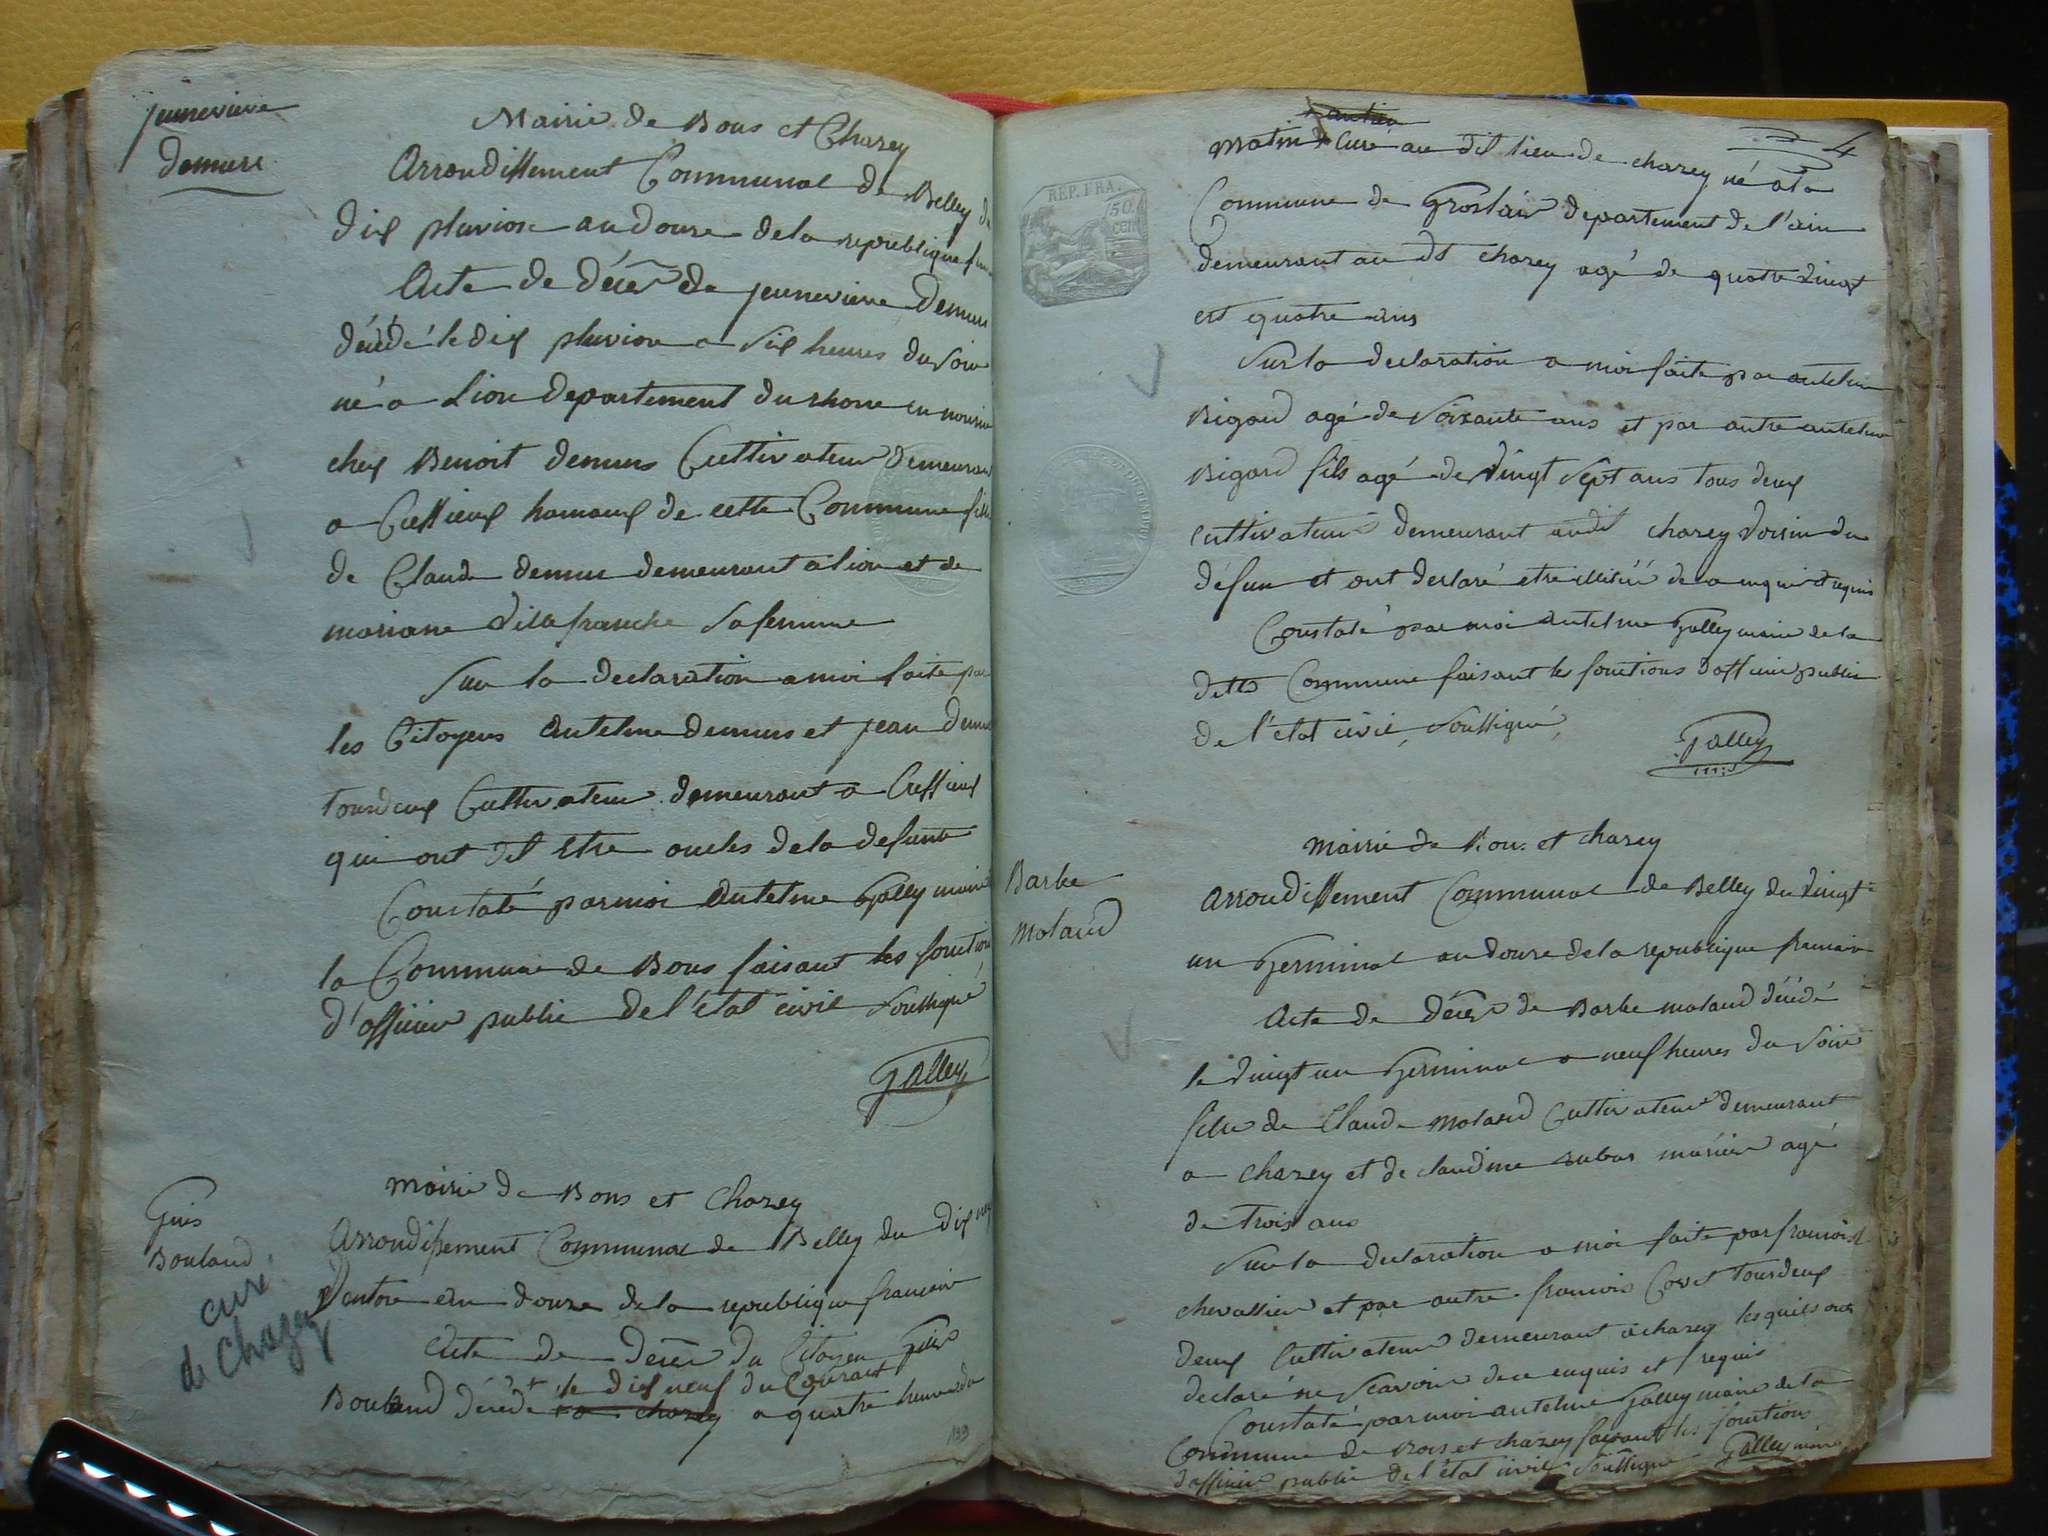 jeunevieve
demure
Mairie de Bons et Chazey
Arrondissement Communal de Belley du
dix pluviose an douze de la republique
Acte de décès de jeunevieve Demure
décédé le dix pluviose a six heures du soir
né a Lion departement du rhone en
chez Benoit demurs Cultivateur demeurant
a Cressieux hamaux de cette Commune fille
de Claude demure demeurant a lion et de
mariane villefranche sa femme
Sur la declaration a moi faite par
les Citoyens Antelme demurs et jean
tous deux Cultivateur demeurant a Cressieux
qui ont dit etre oncles de la defunte
Constaté par moi Antelme Galley maire
la Commune de Bons faisant les fonction
d'officier public de l'état civil soussigné
Galley
Mairie de Bons et Chazey
Guis
Bouland
curé
de Chazey
Arrondissement Communal de Belley du dix neuf
Ventose an douze de la republique francaise
Acte de décès du Citoyen Guis
Bouland décédé le dix neuf du Courant
a chazey a quatre heures du
199
4
matin Curé au dit lieu de chazey né a la
Commune de Groslée departement de l'ain
REP. FRA.
50
CEN
demeurant au dt chazey agé de quatre vingt
et quatre ans
Sur la declaration a moi faite par antelme
Bigard agé de soixante ans et par autre antelme
Bigard fils agé de vingt sept ans tous deux
cultivateurs demeurant au dit chazey voisin du
défun et ont declaré etre illitéré de ce enquis et requis
Constaté par moi antelme Galley maire de la
ditte Commune faisant les fonctions d'officier public
de l'état civil, soussigné,
Galley
Mairie de Bons et chazey
Barbe
Molard
Arrondissement Communal de Belley du vingt
un Germinal an douze de la republique francaise
Acte de décès de Barbe molard décédé
le vingt un Germinal a neuf heures du soir
fille de Claude Molard Cultivateur demeurant
a chazey et de claudine agé
de trois ans
Sur la declaration a moi faite par francois
chevallier et par autre francois tous deux
deux Cultivateur demeurant a chazey lesquels ont
declaré ne scavoir de ce enquis et requis
Constaté par moi antelme Galley maire de la
Commune de Bons et chazey faisant les fonctions
d'officier public de l'état civil soussigné Galley maire